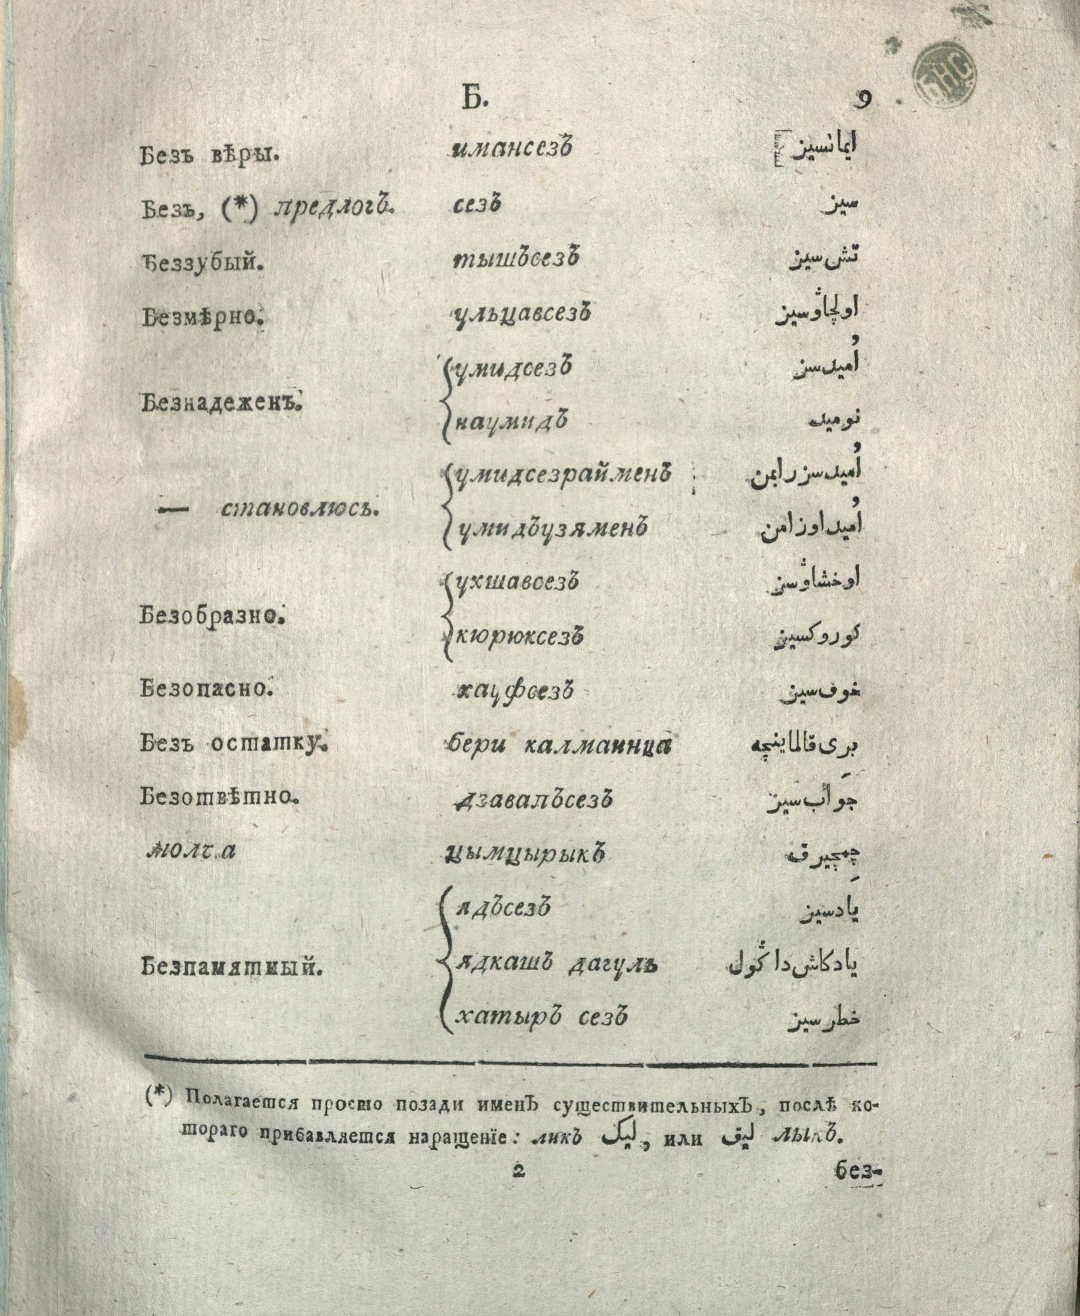 Б. 9
Безъ вѣры. имансезъ ایمانسیز
Безъ, (*) предлогъ. сезъ سیز
Беззубый. тышъсезъ تش سیز
Безмѣрно. ульцавсезъ اولچاۋسیز
Безнадеженъ. умидсезъ اُمیدسز
наумидъ نومید
— становлюсь. умидсезрайменъ اُمیدسزرایمن
умидъузяменъ اُمیداوزامن
Безобразно. ухшавсезъ اوخشاۋسز
кюрюксезъ کوروکسیز
Безопасно. хауфсезъ خوف سیز
Безъ остатку. бери калмаинца بری قالماینچه
Безотвѣтно. дзавалъсезъ جواب سیز
молча цымцырыкъ چمچیرق
Безпамятный. ядъсезъ یادسیز
ядкашъ дагуль یادکاش داکۇل
хатыръ сезъ خطرسیز
(*) Полагается просто позади именъ существительныхъ, послѣ ко-
тораго прибавляется наращенїе: ликъ لیک, или لیق лыкъ.
2 без-